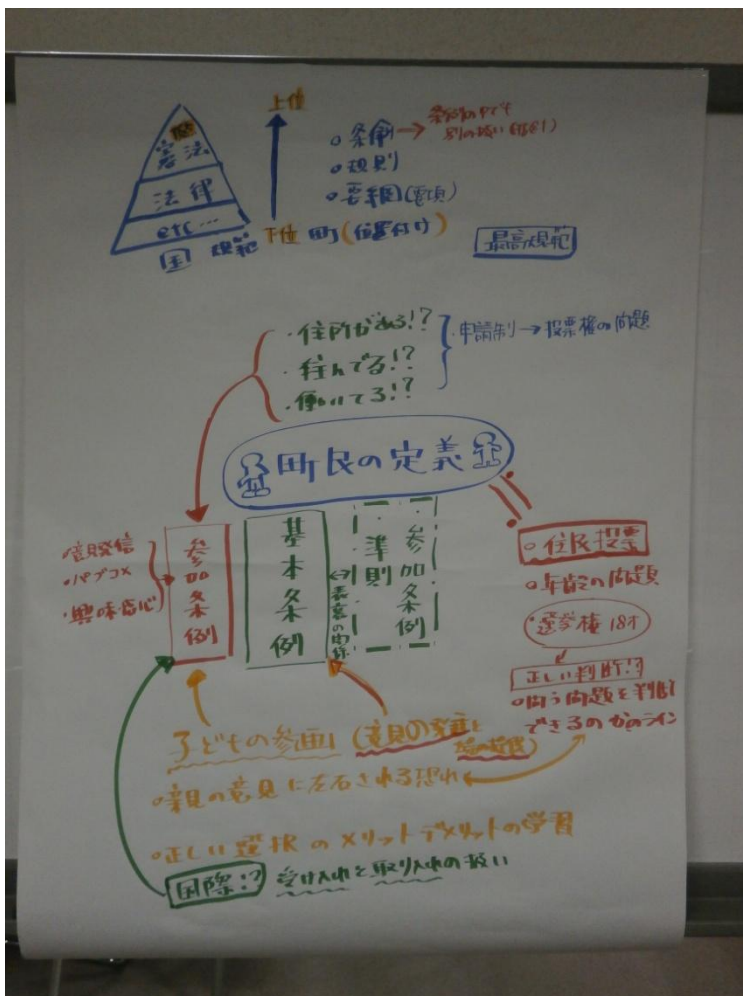 上位
憲法
法律
etc…
国 規範
下位 町(位置付け)
条例→条例の中でも
別の扱い
規則
要綱(要項)
最高規範
・住所がある!?
・住んでる!?
・働いてる!?
申請制→投票権の問題
町民の定義
意見発信
パブコメ
興味関心
参加条例
基本条例
表裏の関係
準則
参加条例
住民投票
年齢の問題
選挙権18才
正しい判断!?
問う問題を判断
できるのかのライン
子どもの参画(意見の発重と
親の意見に左右される恐れ
正しい選択のメリットデメリットの学習
国際!? 受け入れと取り入れの扱い